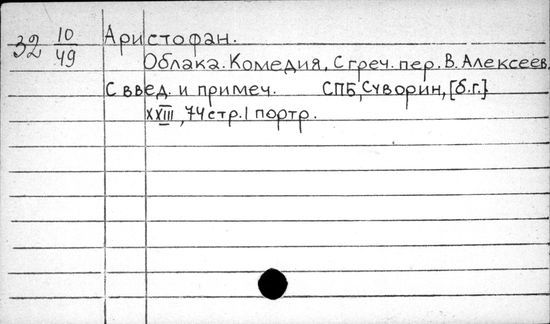 32 10/49
Аристофан.
Облака. Комедия, С греч. пер. В. Алексеев.
С введ. и примеч. СПБ, Суворин, [б.г.]
XXIII, 74 стр. 1 портр.